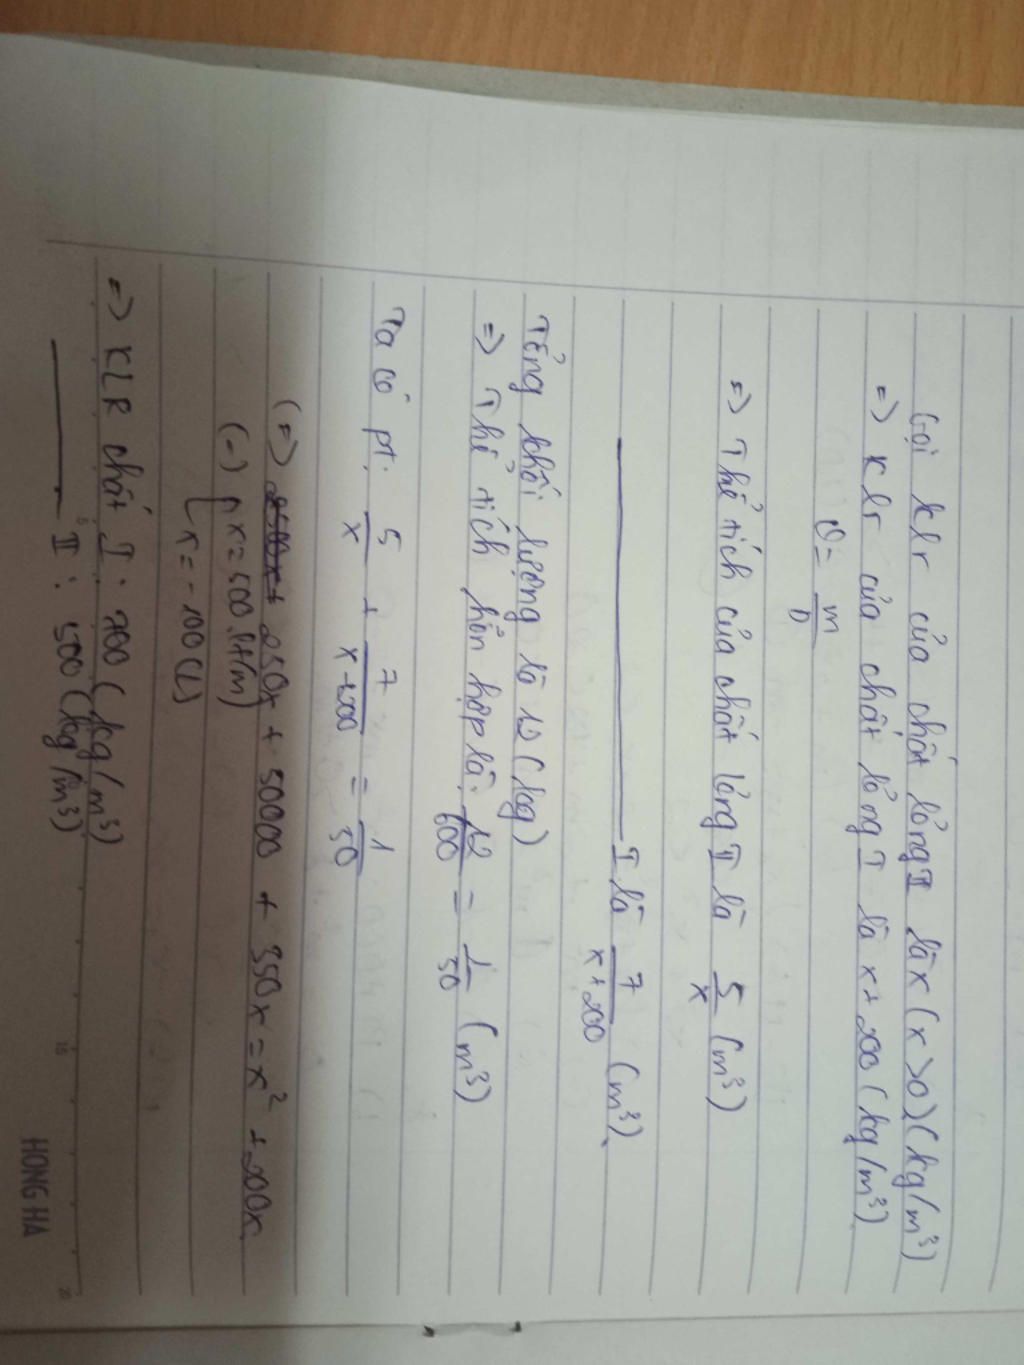 Gọi klr của chất lỏng II là x (x>0) (kg/m³)
=> klr của chất lỏng I là x + 200 (kg/m³)
V = m/D
=> Thể tích của chất lỏng II là 5/x (m³)
I là 7/(x+200) (m³).
Tổng khối lượng là 12 (kg)
=> Thể tích hỗn hợp là: 12/600 = 1/50 (m³)
Ta có pt: 5/x + 7/(x-200) = 1/50
(=>) 250x + 50000 + 350x = x² + 200x
(-) [ x = 500 (t/m)
x = -100 (L)
=> KLR chất I: 700 (kg/m³)
II: 500 (kg/m³)
5
15
20
HONG HA